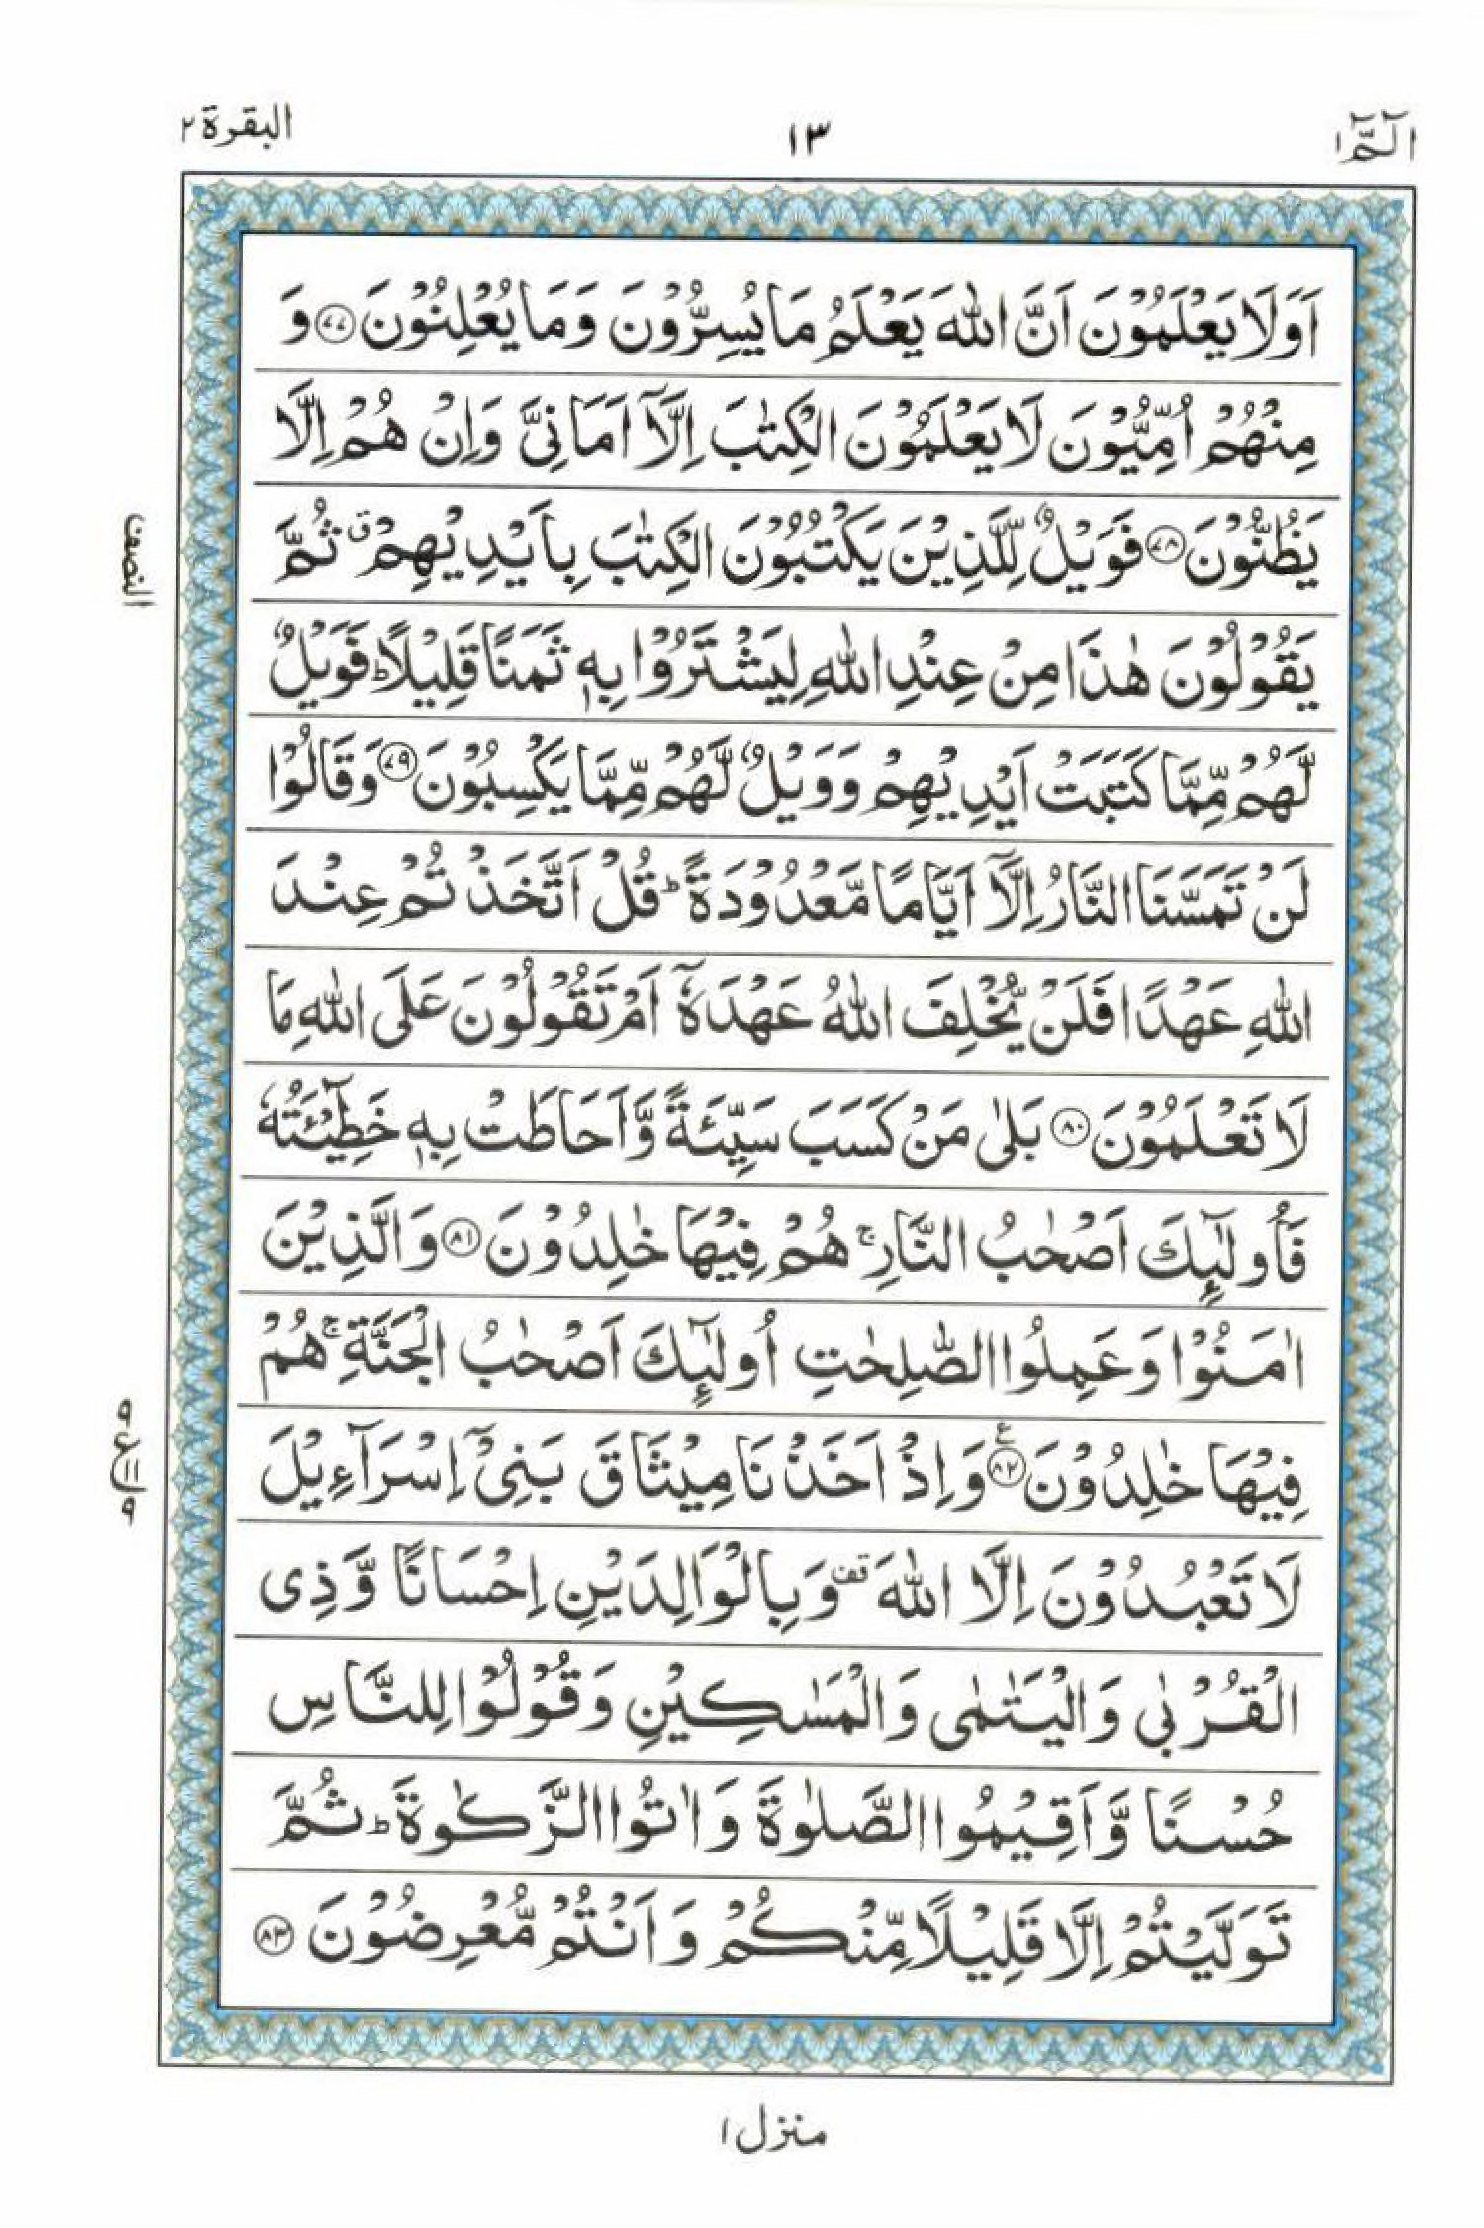 الٓمّٓ ١
١٣
البقرة ٢
اَوَلَا يَعْلَمُوْنَ اَنَّ اللّٰهَ يَعْلَمُ مَا يُسِرُّوْنَ وَمَا يُعْلِنُوْنَ ﴿٧٧﴾ وَ
مِنْهُمْ اُمِّيُّوْنَ لَا يَعْلَمُوْنَ الْكِتٰبَ اِلَّآ اَمَانِيَّ وَاِنْ هُمْ اِلَّا
يَظُنُّوْنَ ﴿٧٨﴾ فَوَيْلٌ لِّلَّذِيْنَ يَكْتُبُوْنَ الْكِتٰبَ بِاَيْدِيْهِمْ ۛق ثُمَّ
يَقُوْلُوْنَ هٰذَا مِنْ عِنْدِ اللّٰهِ لِيَشْتَرُوْا بِهٖ ثَمَنًا قَلِيْلًا ؕ فَوَيْلٌ
لَّهُمْ مِّمَّا كَتَبَتْ اَيْدِيْهِمْ وَوَيْلٌ لَّهُمْ مِّمَّا يَكْسِبُوْنَ ﴿٧٩﴾ وَقَالُوْا
لَنْ تَمَسَّنَا النَّارُ اِلَّآ اَيَّامًا مَّعْدُوْدَةً ؕ قُلْ اَتَّخَذْتُمْ عِنْدَ
اللّٰهِ عَهْدًا فَلَنْ يُّخْلِفَ اللّٰهُ عَهْدَهٗٓ اَمْ تَقُوْلُوْنَ عَلَى اللّٰهِ مَا
لَا تَعْلَمُوْنَ ﴿٨٠﴾ بَلٰى مَنْ كَسَبَ سَيِّئَةً وَّاَحَاطَتْ بِهٖ خَطِيْٓئَتُهٗ
فَاُولٰٓئِكَ اَصْحٰبُ النَّارِ ۚ هُمْ فِيْهَا خٰلِدُوْنَ ﴿٨١﴾ وَالَّذِيْنَ
اٰمَنُوْا وَعَمِلُوا الصّٰلِحٰتِ اُولٰٓئِكَ اَصْحٰبُ الْجَنَّةِ ۚ هُمْ
فِيْهَا خٰلِدُوْنَ ﴿٨٢﴾ ع وَاِذْ اَخَذْنَا مِيْثَاقَ بَنِيْٓ اِسْرَآءِيْلَ
لَا تَعْبُدُوْنَ اِلَّا اللّٰهَ قف وَبِالْوَالِدَيْنِ اِحْسَانًا وَّذِى
الْقُرْبٰى وَالْيَتٰمٰى وَالْمَسٰكِيْنِ وَقُوْلُوْا لِلنَّاسِ
حُسْنًا وَّاَقِيْمُوا الصَّلٰوةَ وَاٰتُوا الزَّكٰوةَ ؕ ثُمَّ
تَوَلَّيْتُمْ اِلَّا قَلِيْلًا مِّنْكُمْ وَاَنْتُمْ مُّعْرِضُوْنَ ﴿٨٣﴾
النصف
٩ ع ١١ ٩
منزل ١